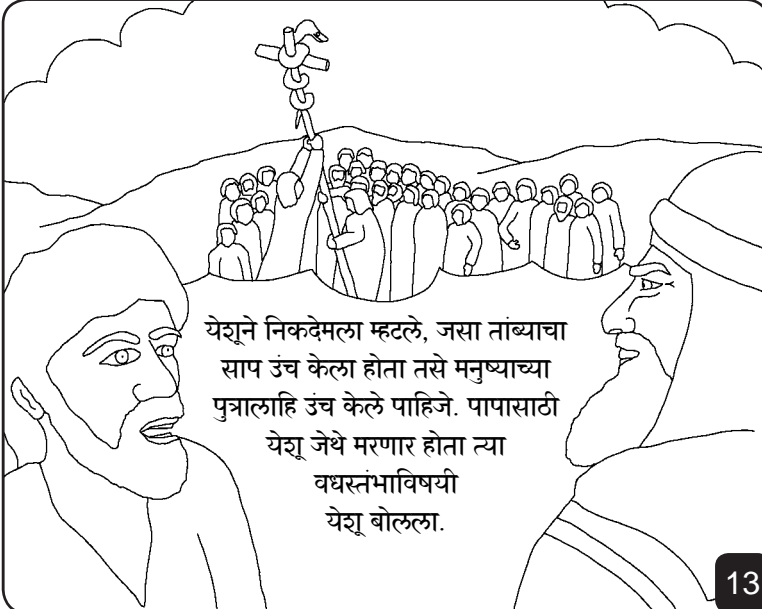 येशूने निकदेमला म्हटले, जसा तांब्याचा
साप उंच केला होता तसे मनुष्याच्या
पुत्रालाहि उंच केले पाहिजे. पापासाठी
येशू जेथे मरणार होता त्या
वधस्तंभाविषयी
येशू बोलला.
13